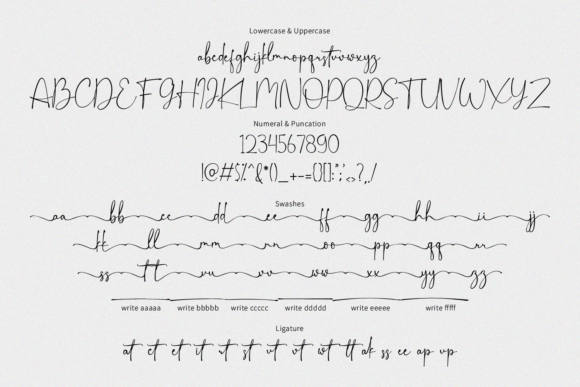 Lowercase & Uppercase
abcdefghijklmnopqrstuvwxyz
ABCDEFGHIJKLMNOPQRSTUVWXYZ
Numeral & Puncation
1234567890
!@#$%^&*()_+-={}[]:";'<>?,./
Swashes
aa bb cc dd ee ff gg hh ii jj
kk ll mm nn oo pp qq rr
ss tt uu vv ww xx yy zz
write aaaaa write bbbbb write ccccc write ddddd write eeeee write fffff
Ligature
at et it ut rt st ut vt wt tt ak ss ee ap up